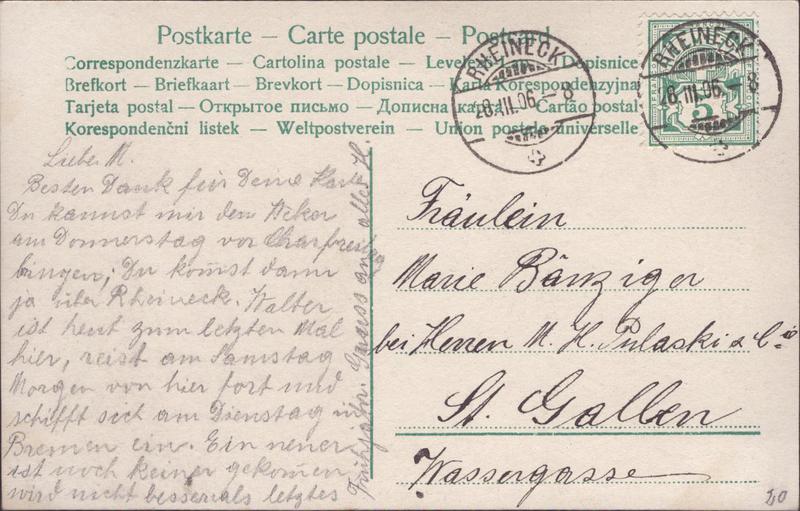 Postkarte – Carte postale – Postcard
Correspondenzkarte – Cartolina postale – Levele Dopisnice
Brefkort – Briefkaart – Brevkort – Dopisnica – Karta Korespondenzyjna
Tarjeta postal – Открытое письмо – Дописна карта – Cartão postal
Korespondenční listek – Weltpostverein – Union postale universelle
RHEINECK
28.III.06. – 8
RHEINECK
28.III.06. – 8
5
Liebe M.
Besten Dank für Deine Karte
Du kannst mir den
am Donnerstag vor Charfreitag
bringen; Du kom̄st dann
ja über Rheineck. Walter
ist heut zum letzten Mal
hier, reist am Samstag
Morgen von hier fort und
schifft sich am Dienstag in
Bremen ein. Ein neuer
ist noch keiner gekom̄en
wird nicht besser als letztes
Frühjahr. Gruss an alle H.
Fräulein
Marie Bänziger
bei Herren M. H. Pulaski & Cie
St. Gallen
Wassergasse
20